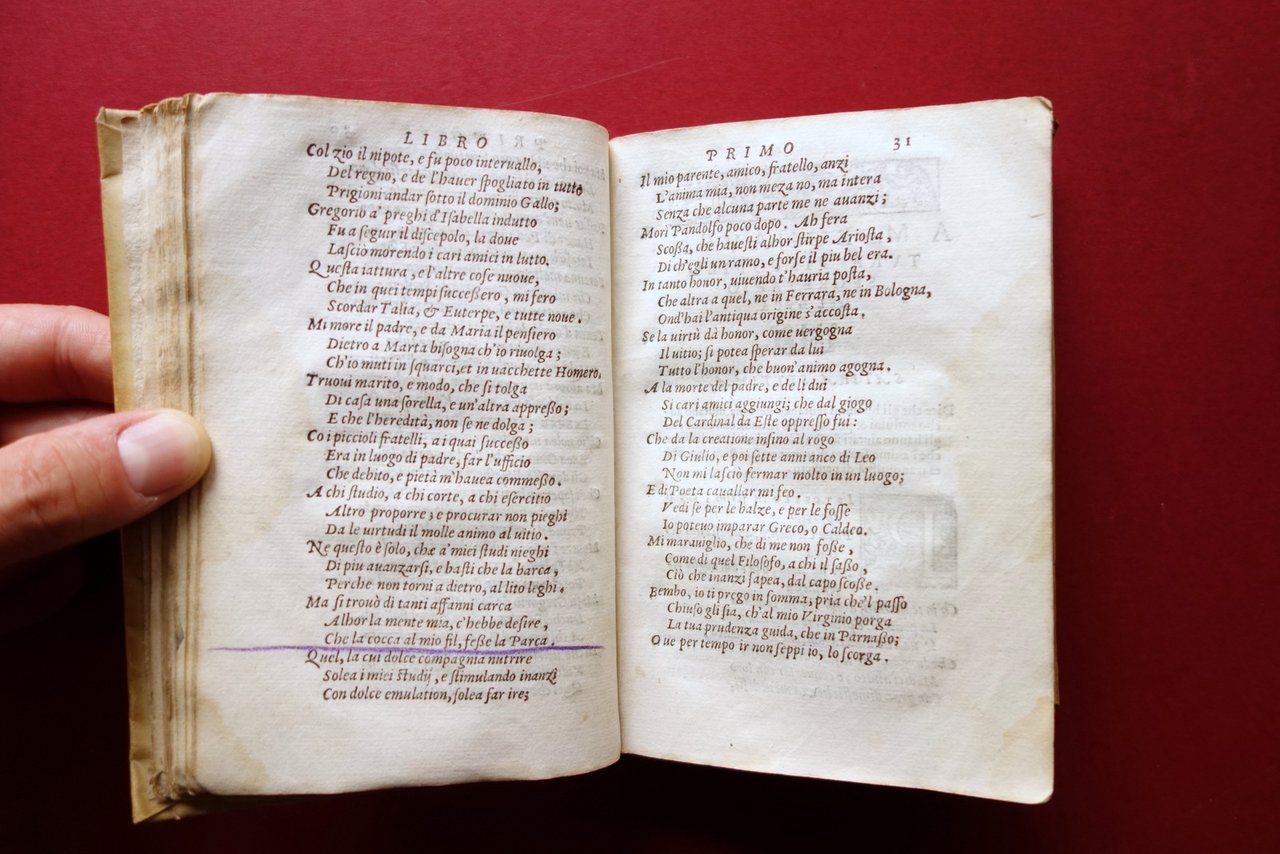 LIBRO
Col zio il nipote, e fu poco interuallo,
Del regno, e de l'hauer ſpogliato in tutto
Prigioni andar ſotto il dominio Gallo;
Gregorio a' preghi d'Iſabella indutto
Fu a ſeguir il diſcepolo, la doue
Laſciò morendo i cari amici in lutto.
Queſta iattura, e l'altre coſe nuoue,
Che in quei tempi ſucceſſero, mi fero
Scordar Talia, & Euterpe, e tutte noue.
Mi more il padre, e da Maria il penſiero
Dietro a Marta biſogna ch'io riuolga;
Ch'io muti in ſquarci, et in uacchette Homero.
Truoui marito, e modo, che ſi tolga
Di caſa una ſorella, e un'altra appreſſo;
E che l'heredità, non ſe ne dolga;
Co i piccioli fratelli, a i quai ſucceſſo
Era in luogo di padre, far l'ufficio
Che debito, e pietà m'hauea commeſſo.
A chi ſtudio, a chi corte, a chi eſercitio
Altro proporre; e procurar non pieghi
Da le uirtudi il molle animo al uitio.
Ne queſto è ſolo, che a' miei ſtudi nieghi
Di piu auanzarſi, e baſti che la barca,
Perche non torni a dietro, al lito leghi.
Ma ſi trouò di tanti affanni carca
Alhor la mente mia, c'hebbe deſire,
Che la cocca al mio fil, feſſe la Parca.
Quel, la cui dolce compagnia nutrire
Solea i miei ſtudij, e ſtimulando inanzi
Con dolce emulation, ſolea far ire;
PRIMO 31
Il mio parente, amico, fratello, anzi
L'anima mia, non meza no, ma intera
Senza che alcuna parte me ne auanzi;
Morì Pandolfo poco dopo. Ah fera
Scoſſa, che haueſti alhor ſtirpe Arioſta,
Di ch'egli un ramo, e forſe il piu bel era.
In tanto honor, uiuendo t'hauria poſta,
Che altra a quel, ne in Ferrara, ne in Bologna,
Ond'hai l'antiqua origine s'accoſta.
Se la uirtù dà honor, come uergogna
Il uitio; ſi potea ſperar da lui
Tutto l'honor, che buon'animo agogna.
A la morte del padre, e de li dui
Si cari amici aggiungi; che dal giogo
Del Cardinal da Eſte oppreſſo fui:
Che da la creatione inſino al rogo
Di Giulio, e poi ſette anni anco di Leo
Non mi laſciò fermar molto in un luogo;
E di Poeta cauallar mi feo.
Vedi ſe per le balze, e per le foſſe
Io poteuo imparar Greco, o Caldeo.
Mi marauiglio, che di me non foſſe,
Come di quel Filoſofo, a chi il ſaſſo,
Ciò che inanzi ſapea, dal capo ſcoſſe.
Bembo, io ti prego in ſomma, pria che'l paſſo
Chiuſo gli ſia, ch'al mio Virginio porga
La tua prudenza guida, che in Parnaſſo;
Oue per tempo ir non ſeppi io, lo ſcorga.